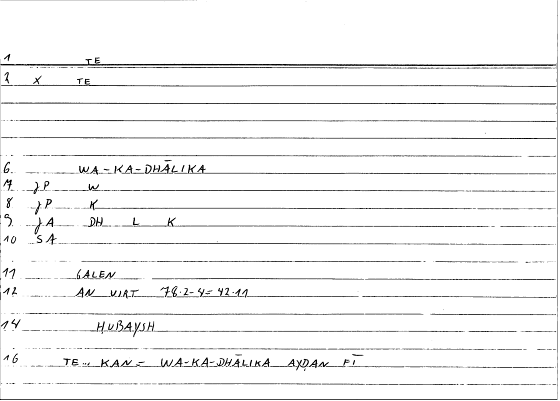 1 TE
2 X TE
6. WA-KA-DHĀLIKA
7 JP W
8 JP K
9 JA DH L K
10 SA
11 GALEN
12 AN VIRT 78.2-4=42.11
14 ḤUBAYSH
16 TE... KAN= WA-KA-DHĀLIKA AYḌAN FĪ